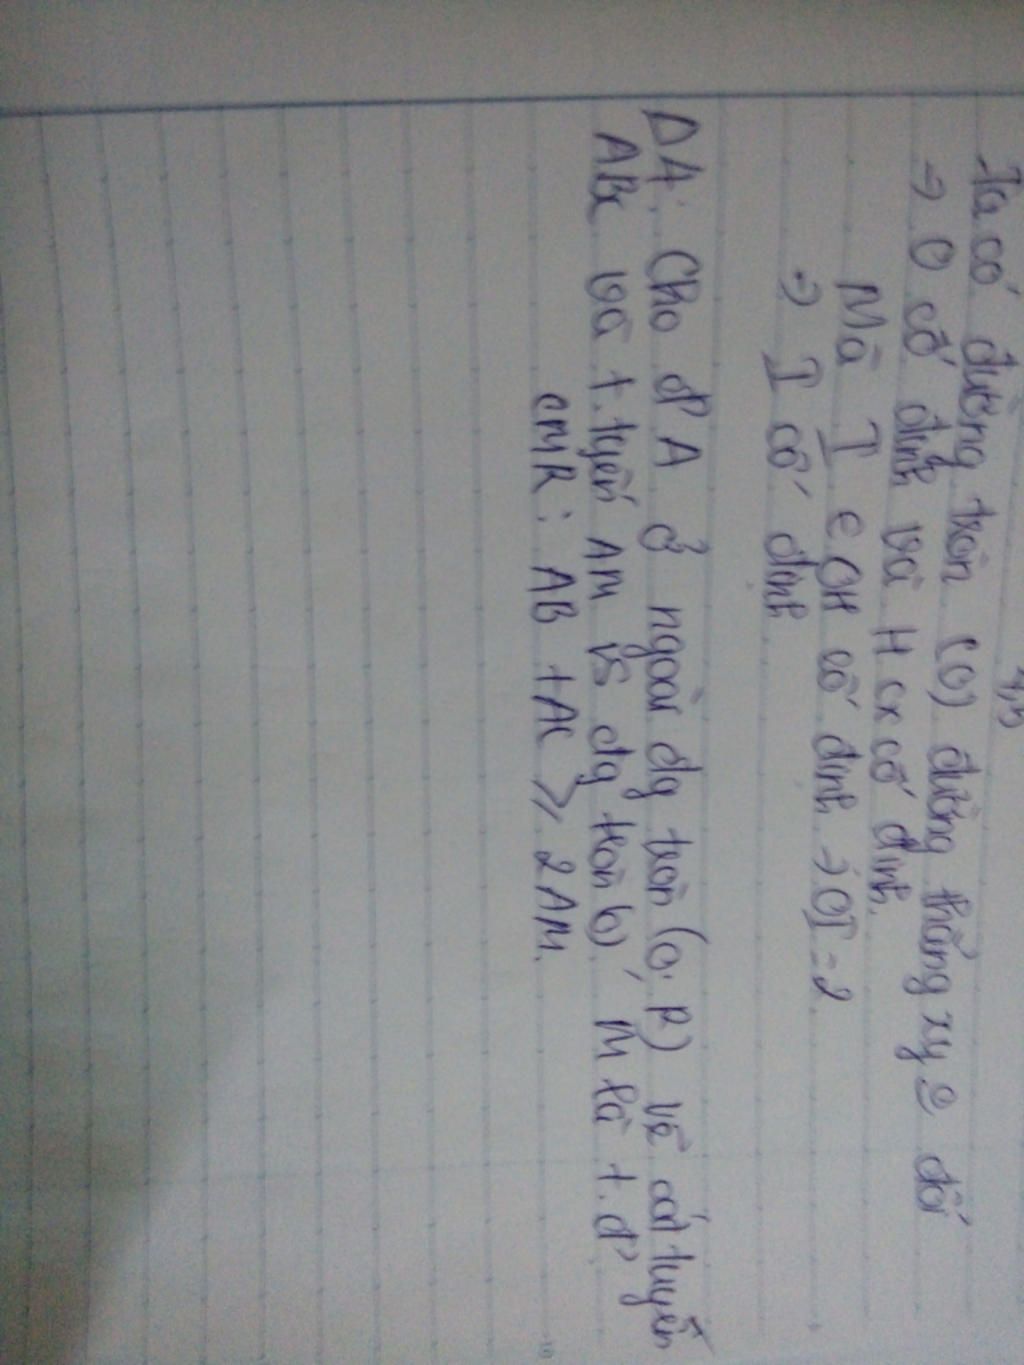 Ta có đường tròn (O) đường thẳng xy cố
⇒ O cố định và H cx cố định.
Mà I ∈ OH cố định → OI = 2
⇒ I cố định
D4: Cho đ' A ở ngoài đg tròn (O; R) vẽ cát tuyến
ABC và t.tuyến AM vs đg tròn (O), M là t.đ'
CMR: AB + AC ≥ 2AM.